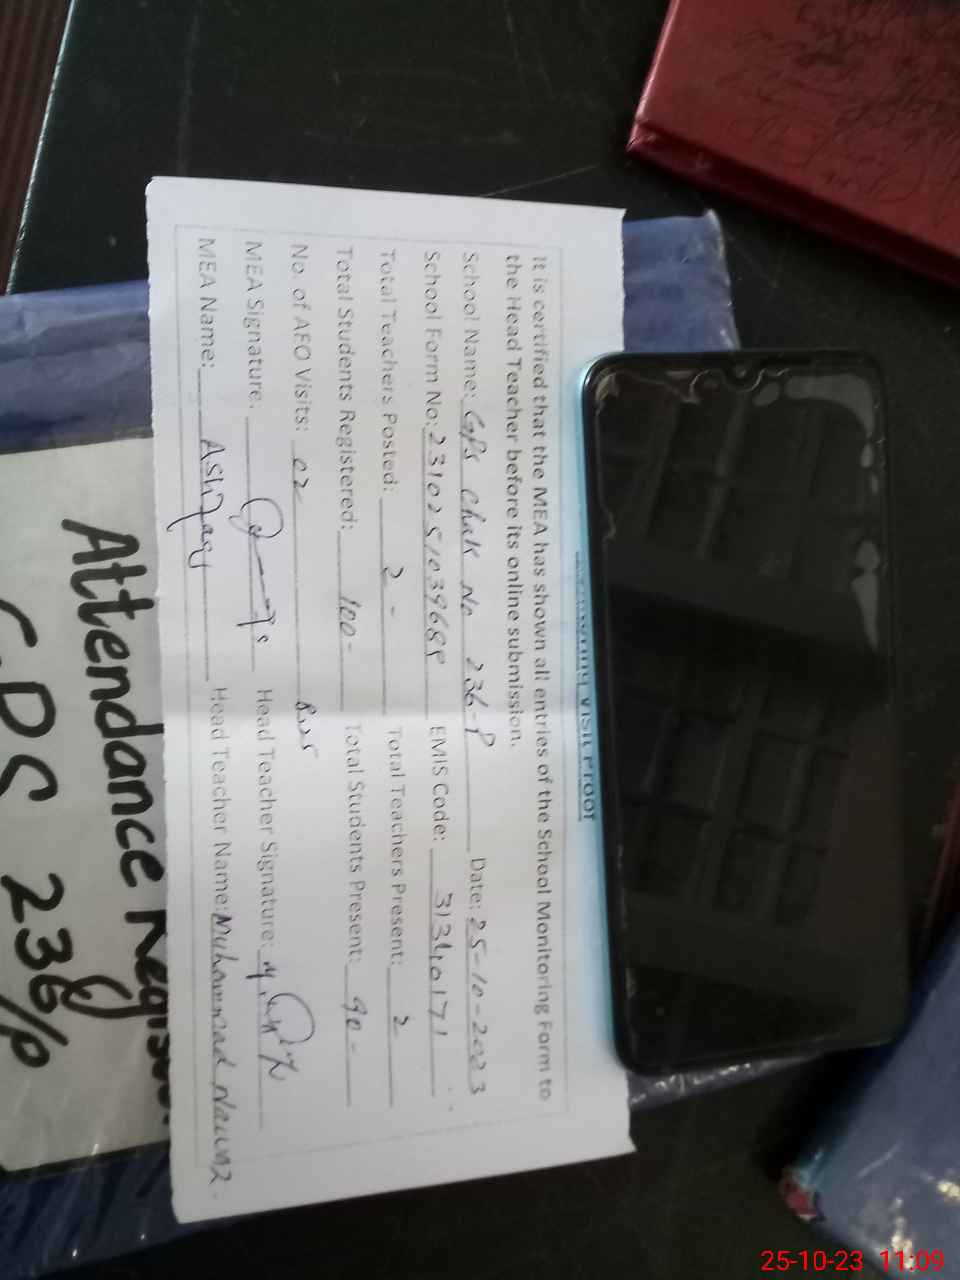 Visit Proof
It is certified that the MEA has shown all entries of the School Monitoring Form to
the Head Teacher before its online submission.
School Name: GPS Chak No 236-P Date: 25-10-2023
School Form No: EMIS Code: 31340171
Total Teachers Posted: 2 - Total Teachers Present: 2
Total Students Registered: 100- Total Students Present: 90-
No. of AEO Visits: 02
MEA Signature: Head Teacher Signature:
MEA Name: Ashfaq Head Teacher Name: Muhammad Nawaz.
Attendance Regis
GPS 236/P
25-10-23 11:09